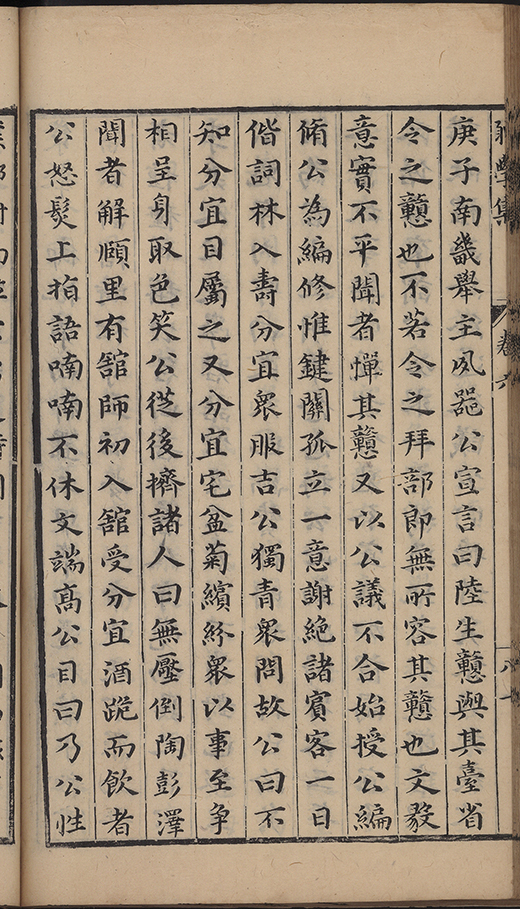 學集 卷六
庚子南畿舉主夙噐公宣言曰陸生戇與其臺省
令之戇也不若令之拜部郎無所容其戇也文毅
意實不平聞者憚其戇又以公議不合始授公編
脩公為編修惟鍵關孤立一意謝絕諸賓客一日
偕詞林入壽分宜衆服吉公獨青衆問故公曰不
知分宜目屬之又分宜宅盆菊繽紛衆以事至爭
相呈身取色笑公從後擠諸人曰無壓倒陶彭澤
聞者解頤里有舘師初入舘受分宜酒跪而飲者
公怒髮上指語喃喃不休文端高公目曰乃公性